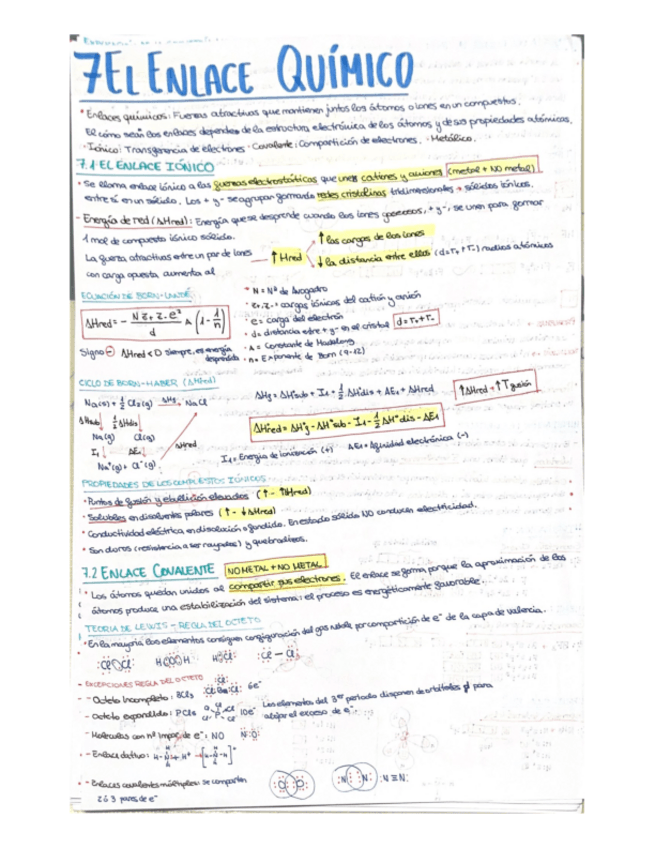 7 EL ENLACE QUÍMICO
• Enlaces químicos: Fuerzas atractivas que mantienen juntos los átomos o iones en un compuestos.
El cómo sean los enlaces depende de la estructura electrónica de los átomos y de sus propiedades atómicas.
· Iónico: Transferencia de electrones · Covalente: Compartición de electrones. · Metálico.
7.1 EL ENLACE IÓNICO
• Se llama enlace iónico a las fuerzas electrostáticas que unen cationes y aniones (metal + NO metal)
entre sí en un sólido. Los + y - se agrupan formando redes cristalinas tridimensionales → sólidos iónicos.
- Energía de red (ΔHred): Energía que se desprende cuando los iones gaseosos, + y -, se unen para formar
1 mol de compuesto iónico sólido.
La fuerza atractivas entre un par de iones
con carga opuesta aumenta al
↑ Hred
↑ las cargas de los iones
↓ la distancia entre ellas (d = r+ r-) radios atómicos
ECUACIÓN DE BORN-LANDÉ
ΔHred = - N Z+ Z- e² / d A (1 - 1/n)
Signo ⊖ ΔHred < 0 siempre, es energía
desprendida
• N = Nº de Avogadro
• Z+, Z- = cargas iónicas del catión y anión
• e = carga del electrón
• d = distancia entre + y - en el cristal d = r+ r-
• A = Constante de Madelung
• n = Exponente de Born (9-12)
CICLO DE BORN-HABER (ΔHred)
Na(s) + ½ Cl2(g) ΔHf → NaCl
ΔHsub ↓ ½ ΔHdis ↓
Na(g) Cl(g)
I1 ↓ AE1 ↓ ΔHred
Na+(g) + Cl-(g)
ΔHf = ΔHsub + I1 + ½ ΔHdis + AE1 + ΔHred
↑ΔHred → ↑T fusión
ΔHred = ΔH°f - ΔH°sub - I1 - ½ ΔH°dis - AE1
I1 = Energía de ionización (+) AE1 = Afinidad electrónica (-)
PROPIEDADES DE LOS COMPUESTOS IÓNICOS
• Puntos de fusión y ebullición elevados (↑ - ↑Hred)
• Solubles en disolventes polares (↑ - ↓ΔHred)
• Conductividad eléctrica en disolución o fundido. En estado sólido NO conducen electricidad.
• Son duros (resistencia a ser rayados) y quebradizos.
7.2 ENLACE COVALENTE NO METAL + NO METAL
• Los átomos quedan unidos al compartir sus electrones. El enlace se forma porque la aproximación de los
átomos produce una estabilización del sistema: el proceso es energéticamente favorable.
TEORÍA DE LEWIS - REGLA DEL OCTETO
• En la mayoría los elementos consiguen configuración del gas noble, por compartición de e⁻ de la capa de valencia.
:Cl Cl: :Cl - Cl:
- EXCEPCIONES REGLA DEL OCTETO
- Octeto incompleto: BCl3 6e⁻
- Octeto expandido: PCl5 10e⁻ Los elementos del 3er período disponen de orbitales d para
alojar el exceso de e⁻
- Moléculas con nº impar de e⁻: NO N::O:
- Enlace dativo:
- Enlaces covalentes múltiples: se comparten
2 ó 3 pares de e⁻
:O O: :N N: :N≡N: